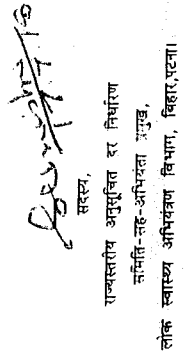 सदस्य,
राज्यस्तरीय अनुसूचित दर निर्धारण
समिति-सह-अभियंता प्रमुख,
लोक स्वास्थ्य अभियंत्रण विभाग, बिहार,पटना।